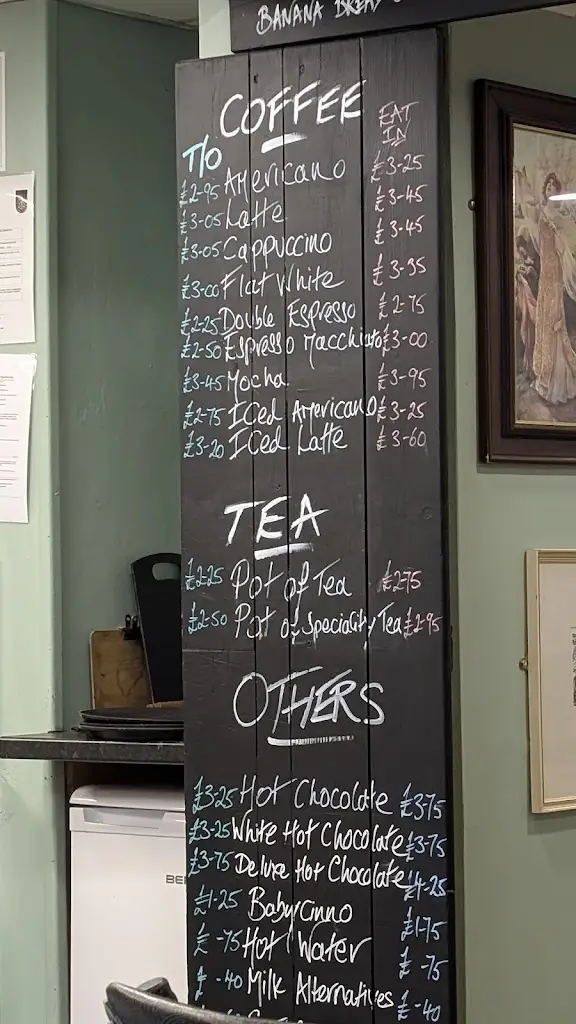 BANANA BREAD
COFFEE
T/O EAT IN
£2-95 Americano £3-25
£3-05 Latte £3-45
£3-05 Cappuccino £3-45
£3-00 Flat White £3-35
£2-25 Double Espresso £2-75
£2-50 Espresso Macchiato £3-00
£3-45 Mocha £3-95
£2-75 Iced Americano £3-25
£3-20 Iced Latte £3-60
TEA
£2-25 Pot of Tea £2-75
£2-50 Pot of Speciality Tea £2-95
OTHERS
£3-25 Hot Chocolate £3-75
£3-25 White Hot Chocolate £3-75
£3-75 Deluxe Hot Chocolate £4-25
£1-25 Babycinno £1-75
£ -75 Hot Water £ -75
£ -40 Milk Alternatives £ -40